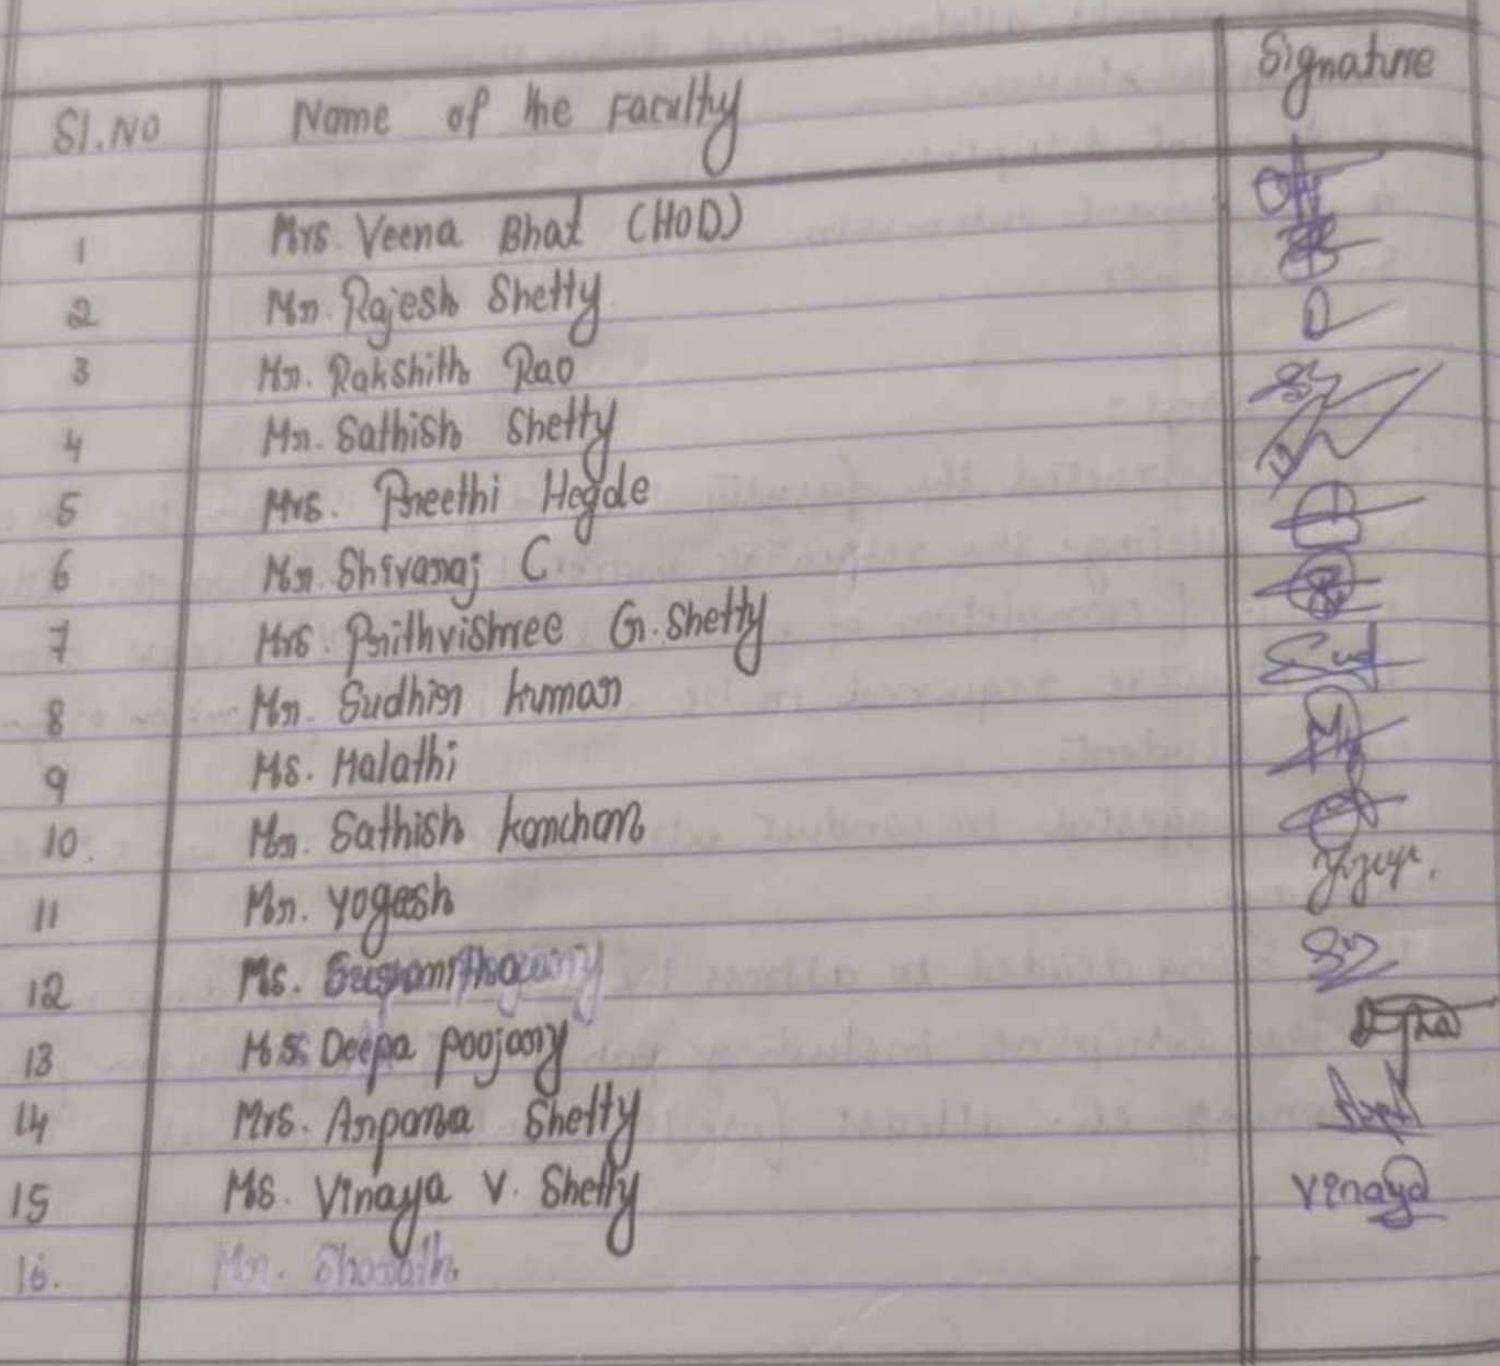 Sl.No Name of the Faculty Signature
1 Mrs. Veena Bhat (HOD)
2 Mr. Rajesh Shetty
3 Mr. Rakshith Rao
4 Mr. Sathish Shetty
5 Mrs. Preethi Hegde
6 Mr. Shivaraj C
7 Mrs. Prithvishree G. Shetty
8 Mr. Sudhir kumar
9 Ms. Malathi
10. Mr. Sathish kanchan
11 Mr. yogesh
12 Ms.
13 Deepa poojary
14 Mrs. Arpana Shetty
15 Ms. Vinaya V. Shetty Vinaya
16. Mr. Sharath